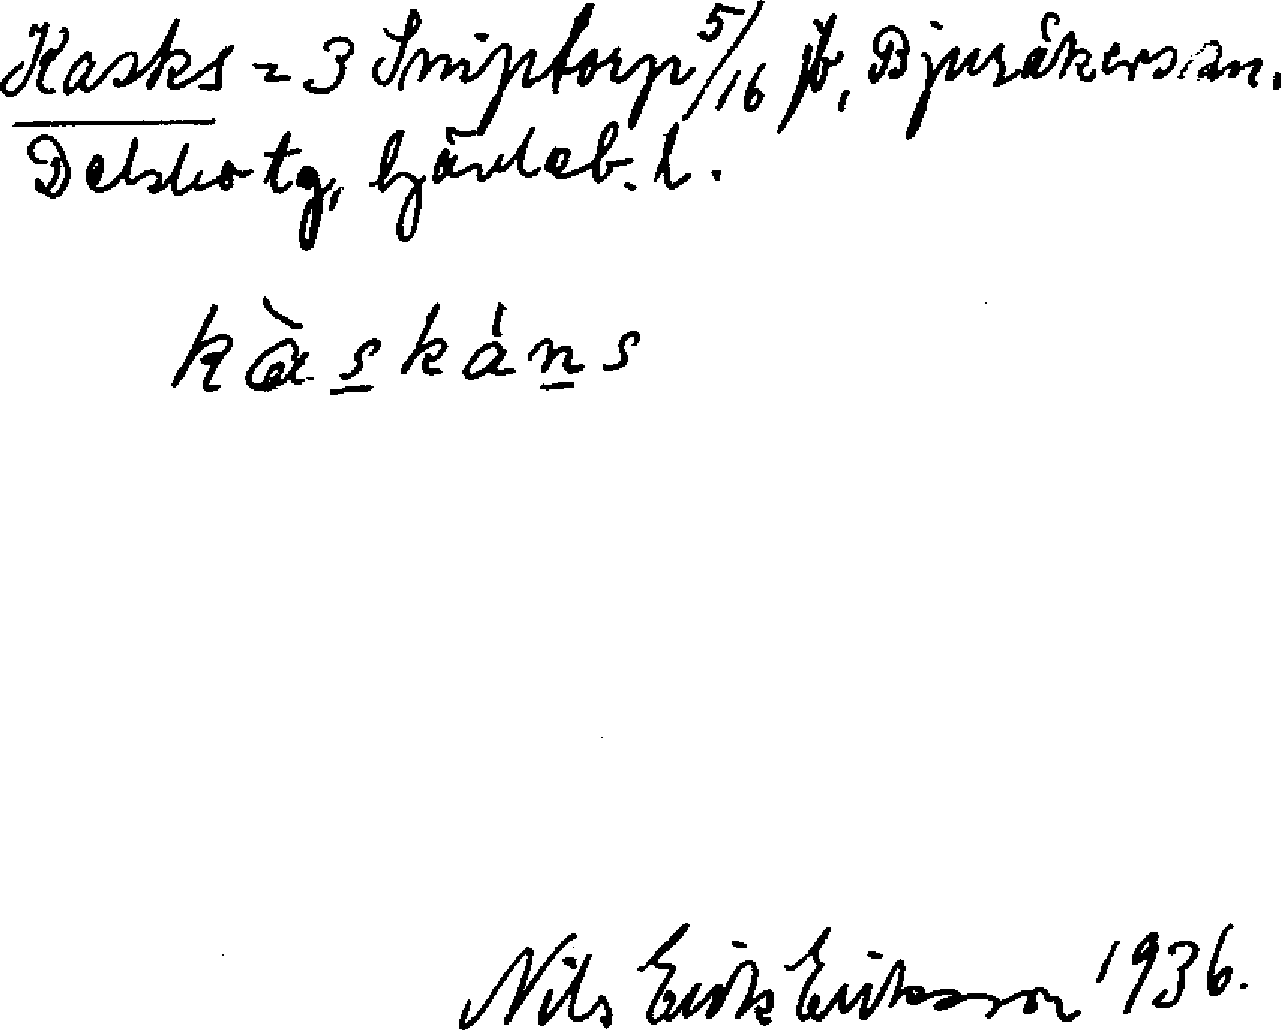 Kasks = 3 Sniptorp 5/16 fr, Bjuråkers sn.
Delsbo tg, Gävleb. l.
kàskáns
Nils Erik Eriksson 1936.